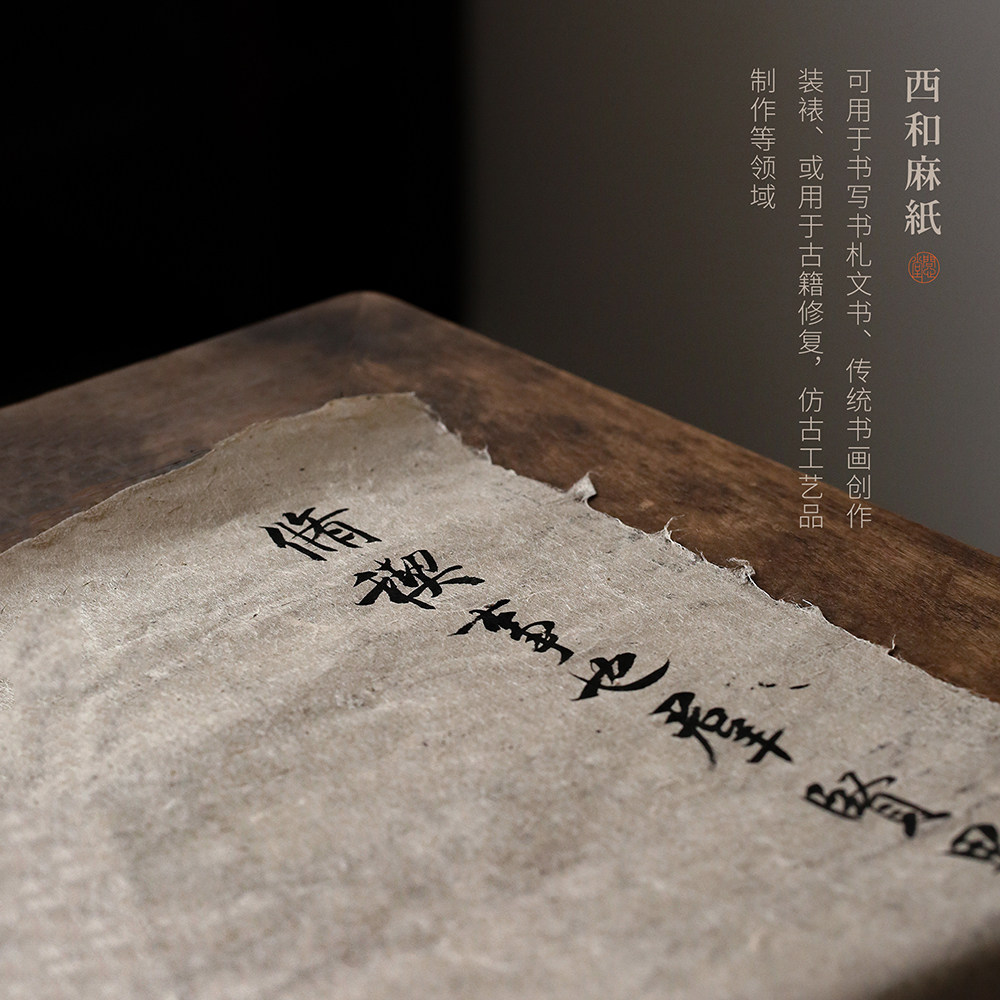 西和麻紙
可用于书写书札文书、传统书画创作
装裱、或用于古籍修复，仿古工艺品
制作等领域
脩禊事也羣賢